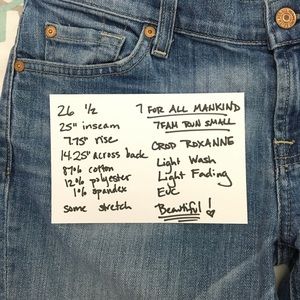 26 1/2
25" inseam
7.75" rise
14.25" across back
87% cotton
12% polyester
1% spandex
some stretch
7 FOR ALL MANKIND
7FAM RUN SMALL
CROP ROXANNE
Light Wash
Light Fading
EUC
Beautiful!